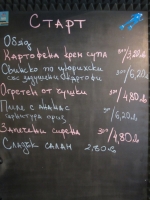 Старт
Обяд
Картофена крем супа 300/3,20лв
Свинско по цюрихски 300/6,20лв
сос задушени картофи
Огретен от тиквички 300/4,80лв
Пиле с ананас
гарнитура ориз 300/6,20лв
Запечени сирена 300/4,80лв
Сладък салам 2.80лв